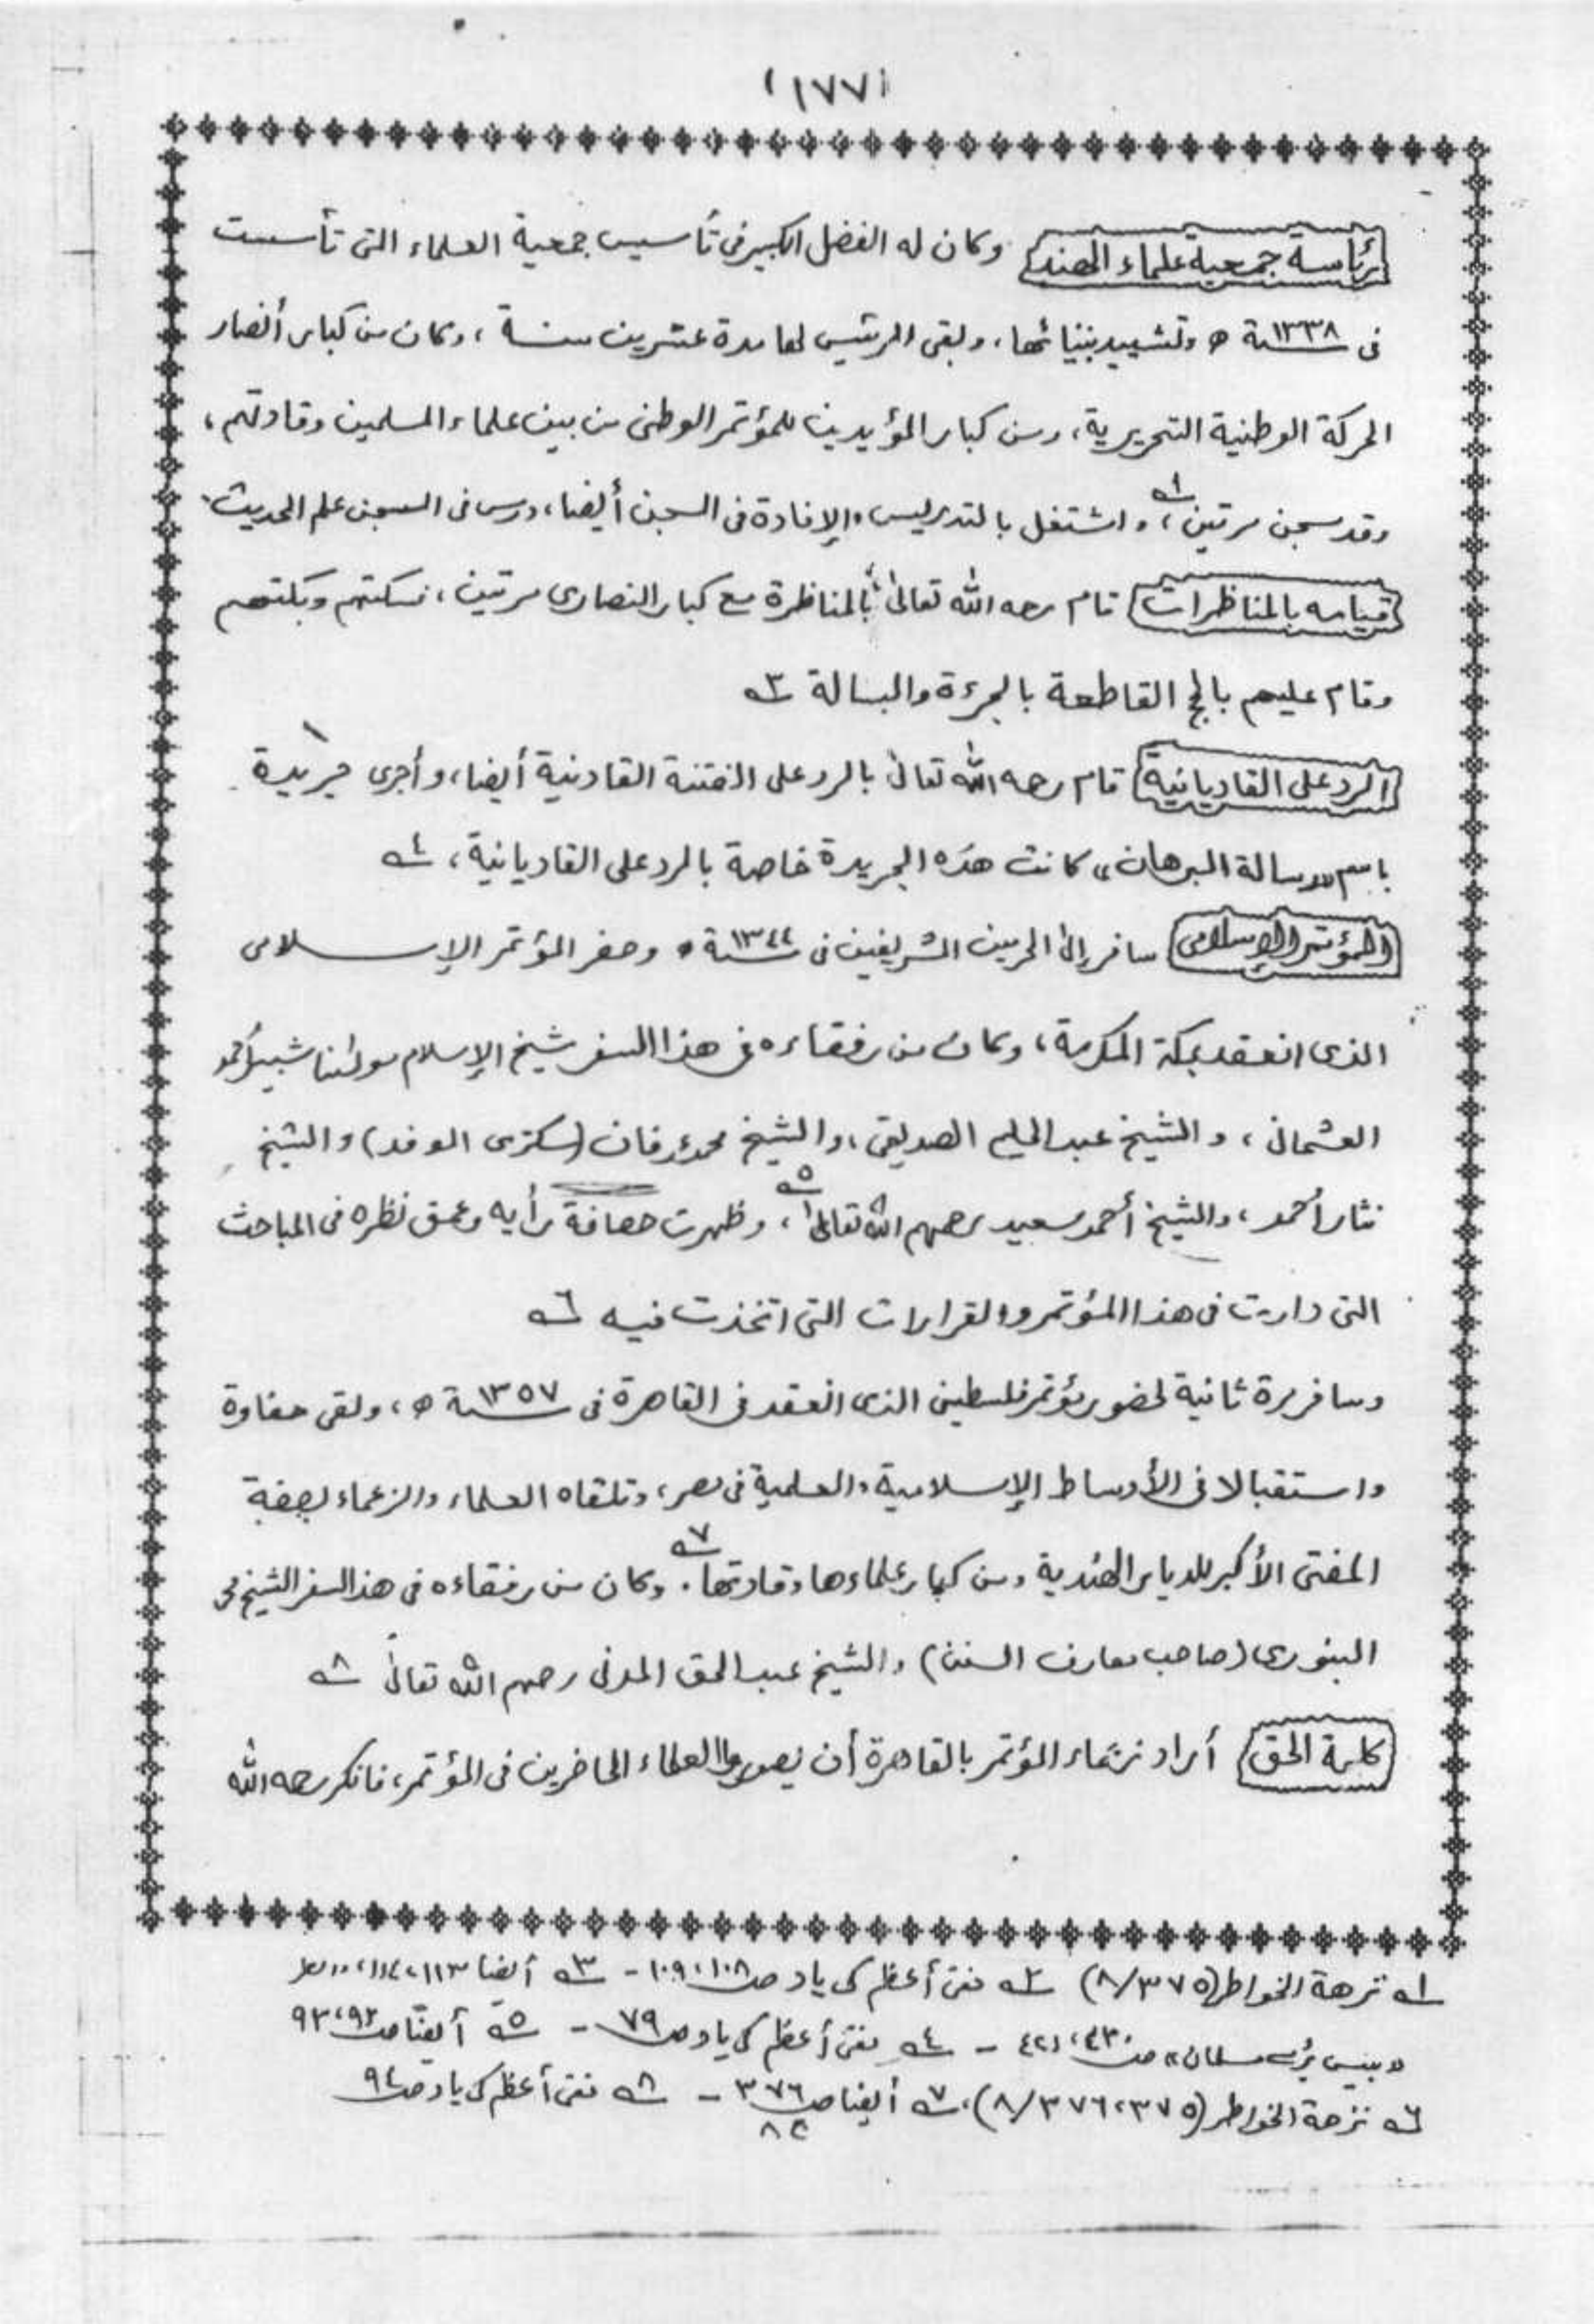 (١٧٧)
رئاسة جمعية علماء الهند وكان له الفضل الكبير فى تأسيس جمعية العلماء التى تأسست
فى سنة ١٣٣٨ ه وتشييد بنيانها، وبقى الرئيس لها مدة عشرين سنة ، وكان من كبار أنصار
الحركة الوطنية التحريرية، ومن كبار المؤيدين للمؤتمر الوطنى من بين علماء المسلمين وقادتهم،
وقد سجن مرتين،١ واشتغل بالتدريس والإفادة فى السجن أيضا، درس فى السجن علم الحديث
قيامه بالمناظرات قام رحمه الله تعالى بالمناظرة مع كبار النصارى مرتين، فسكتهم وبكتهم
وقام عليهم بالحجج القاطعة بالجرءة والبسالة ٣
الرد على القاديانية قام رحمه الله تعالى بالرد على الفتنة القادنية أيضا، وأجرى جريدة
باسم "رسالة البرهان" كانت هذه الجريدة خاصة بالرد على القاديانية، ٤
المؤتمر الإسلامى سافر إلى الحرمين الشريفين فى سنة ١٣٤٤ ه وحضر المؤتمر الإسلامى
الذى انعقد بمكة المكرمة، وكان من رفقاءه فى هذا السفر شيخ الإسلام مولٰنا شبير أحمد
العثمانى، والشيخ عبد الحليم الصديقى، والشيخ محمد عرفان (سكرترى الوفد) والشيخ
نثار أحمد، والشيخ أحمد سعيد رحمهم الله تعالى٥، وظهرت حصافة رأيه وعمق نظره فى المباحث
التى دارت فى هذا المؤتمر والقرارات التى اتخذت فيه ٦
وسافر مرة ثانية لحضور مؤتمر فلسطين الذى انعقد فى القاهرة فى سنة ١٣٥٧ ه، ولقى حفاوة
واستقبالا فى الأوساط الإسلامية والعلمية فى مصر، وتلقاه العلماء والزعماء بصفة
المفتى الأكبر للديار الهندية ومن كبار علماءها وقادتها٧. وكان من رفقاءه فى هذا السفر الشيخ محمد
البنورى (صاحب معارف السنن) والشيخ عبد الحق المدنى رحمهم الله تعالى ٨
كلمة الحق أراد زعماء المؤتمر بالقاهرة أن يصوروا العلماء الحاضرين فى المؤتمر، فانكر رحمه الله
١ نزهة الخواطر (٨/٣٧٥) ٢ مفتى أعظم كى ياد ص ١٠٨، ١٠٩ - ٣ أيضا ١١٣، ١١٤
"بيس بڑے مسلمان" ص ٤٢٠، ٤٢١ - ٤ مفتى أعظم كى ياد ص ٧٩ - ٥ أيضا ص ٩٢، ٩٣
٦ نزهة الخواطر (٨/٣٧٦،٣٧٥)، ٧ أيضا ص ٣٧٦ - ٨ مفتى أعظم كى ياد ص ٩٤